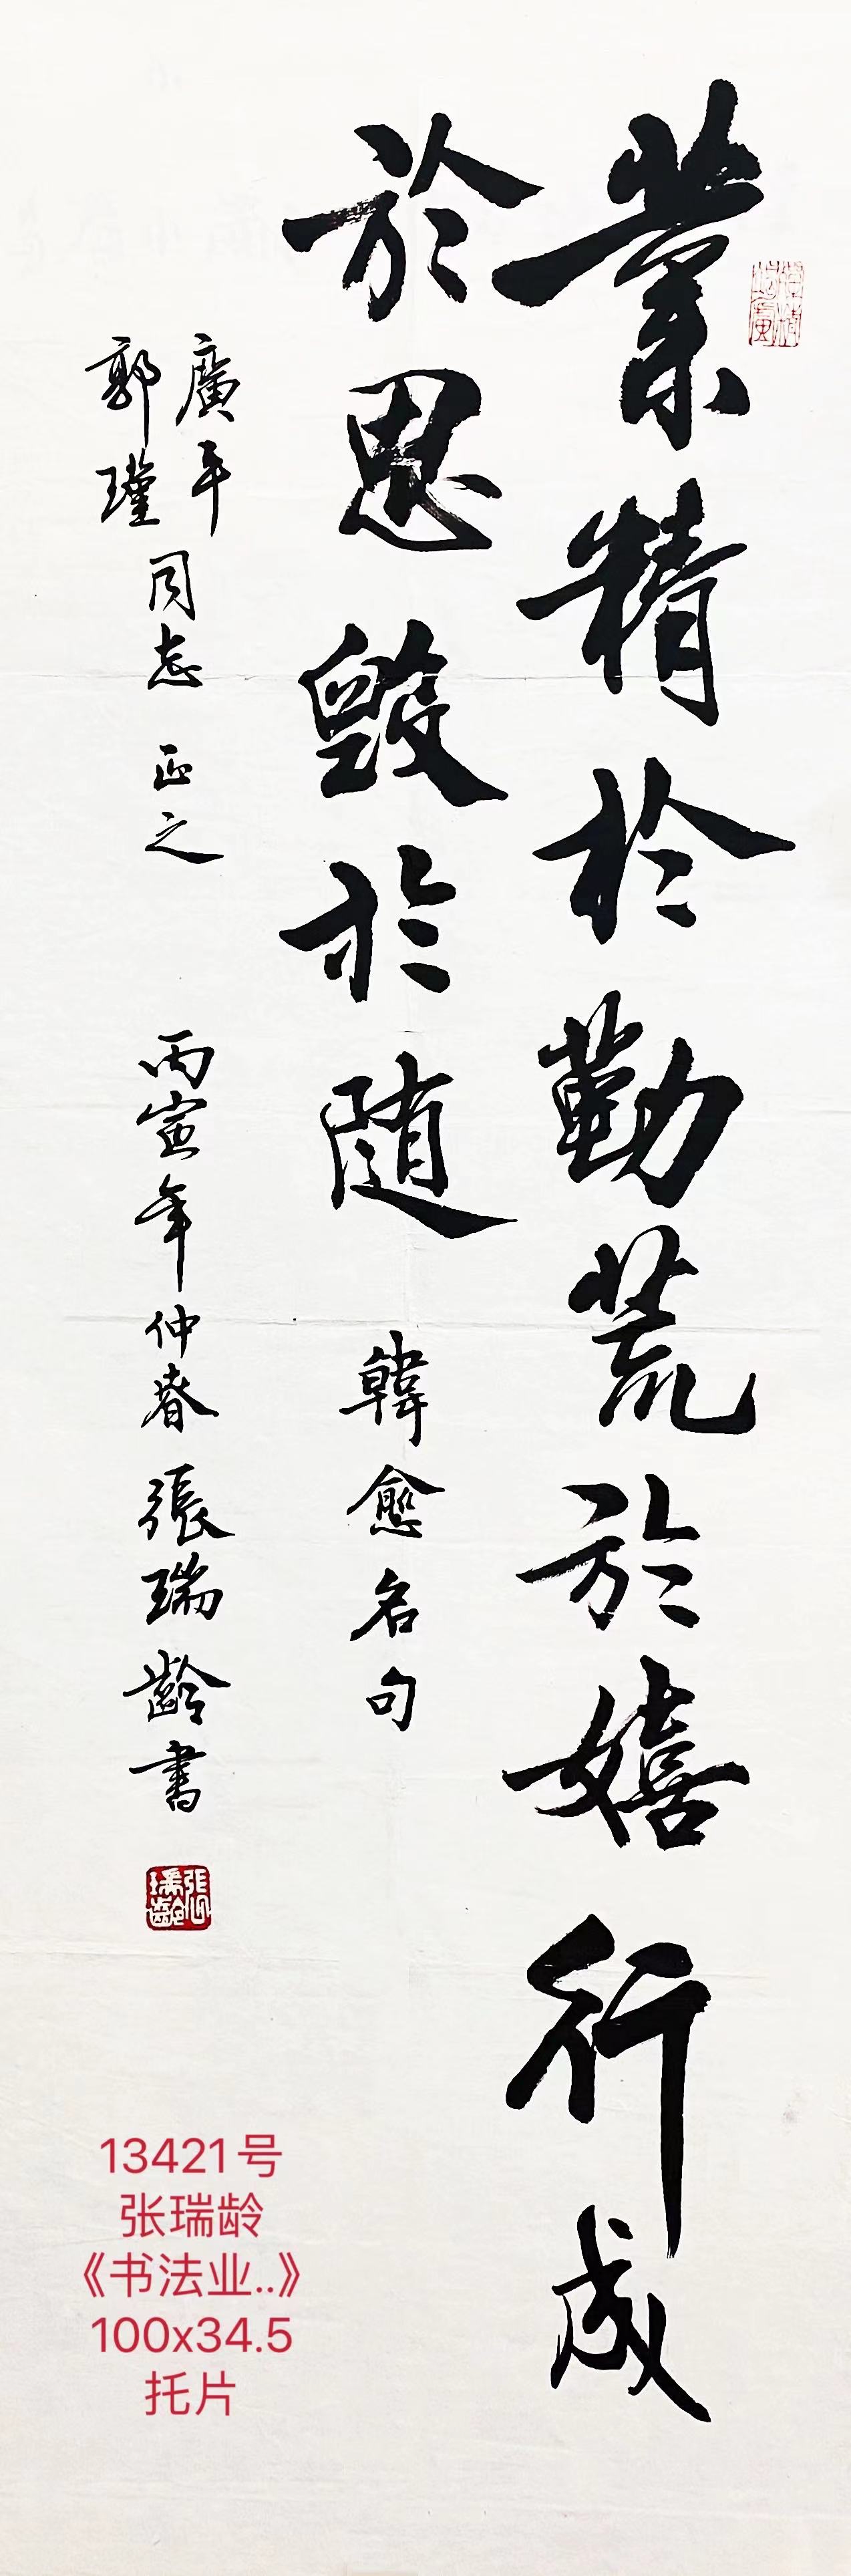 業精於勤荒於嬉行成
於思毁於随 韓愈名句
廣平
郭瑾
同志 正之 丙寅年仲春張瑞齡書
張瑞齡
13421号
张瑞龄
《书法业..》
100x34.5
托片